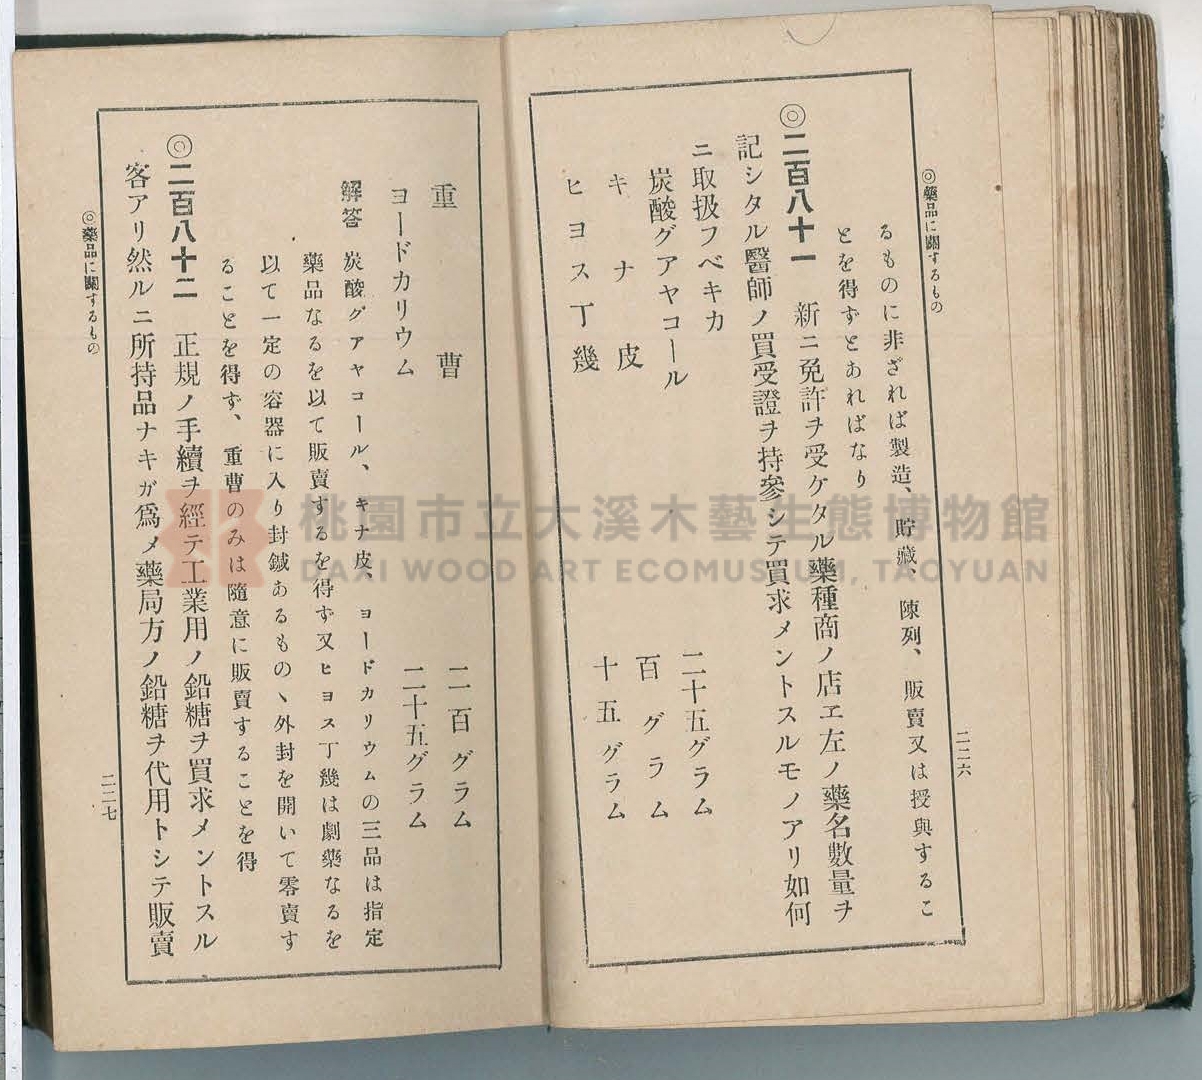 ◎藥品に關するもの
二二六
るものに非ざれば製造、貯藏、陳列、販賣又は授與するこ
とを得ずとあればなり
◎二百八十一　新ニ免許ヲ受ケタル藥種商ノ店エ左ノ藥名數量ヲ
記シタル醫師ノ買受證ヲ持參シテ買求メントスルモノアリ如何
ニ取扱フベキカ
炭酸グアヤコール　二十五グラム
キナ皮　百グラム
ヒヨス丁幾　十五グラム
重曹　二百グラム
ヨードカリウム　二十五グラム
解答　炭酸グアヤコール、キナ皮、ヨードカリウムの三品は指定
藥品なるを以て販賣するを得ず又ヒヨス丁幾は劇藥なるを
以て一定の容器に入り封鍼あるもの丶外封を開いて零賣す
ることを得ず、重曹のみは隨意に販賣することを得
◎二百八十二　正規ノ手續ヲ經テ工業用ノ鉛糖ヲ買求メントスル
客アリ然ルニ所持品ナキガ爲メ藥局方ノ鉛糖ヲ代用トシテ販賣
◎藥品に關するもの
二二七
桃園市立大溪木藝生態博物館
DAXI WOOD ART ECOMUSEUM, TAOYUAN